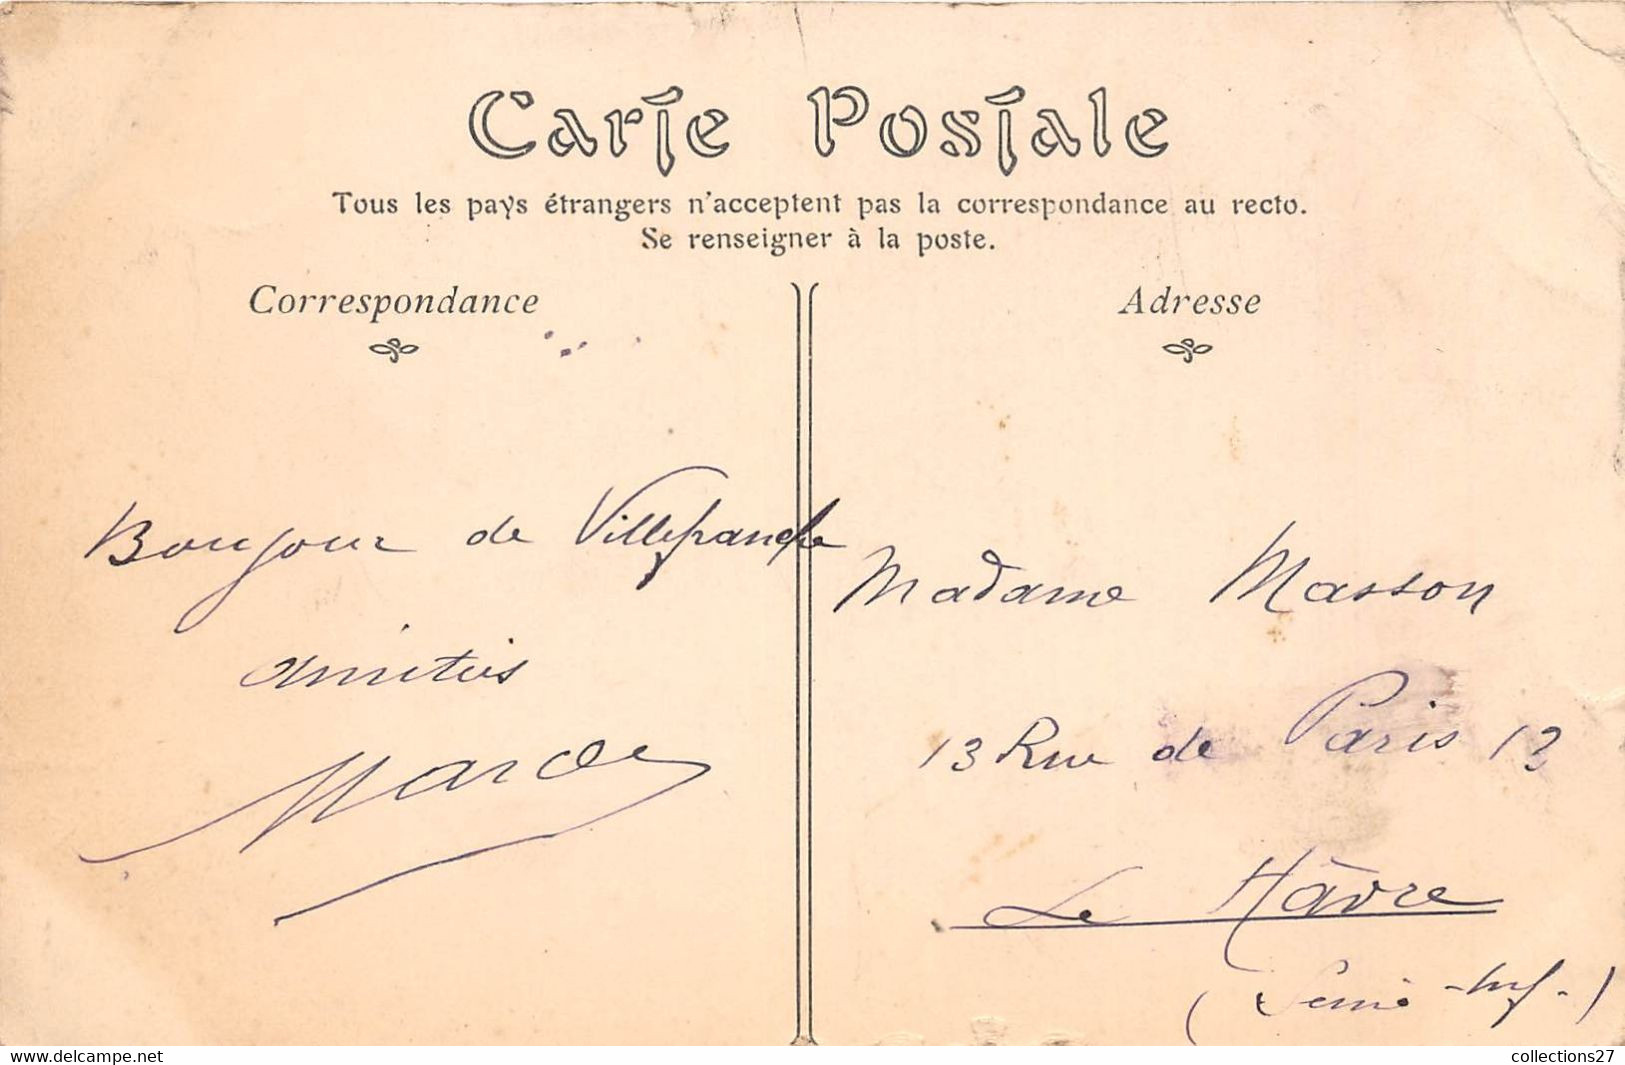 Carte Postale
Tous les pays étrangers n'acceptent pas la correspondance au recto.
Se renseigner à la poste.
Correspondance
Bonjour de Villefranche
amitiés
Adresse
Madame Masson
13 Rue de Paris 13
Le Hâvre
(Seine-Inf.)
delcampe.net
collections27